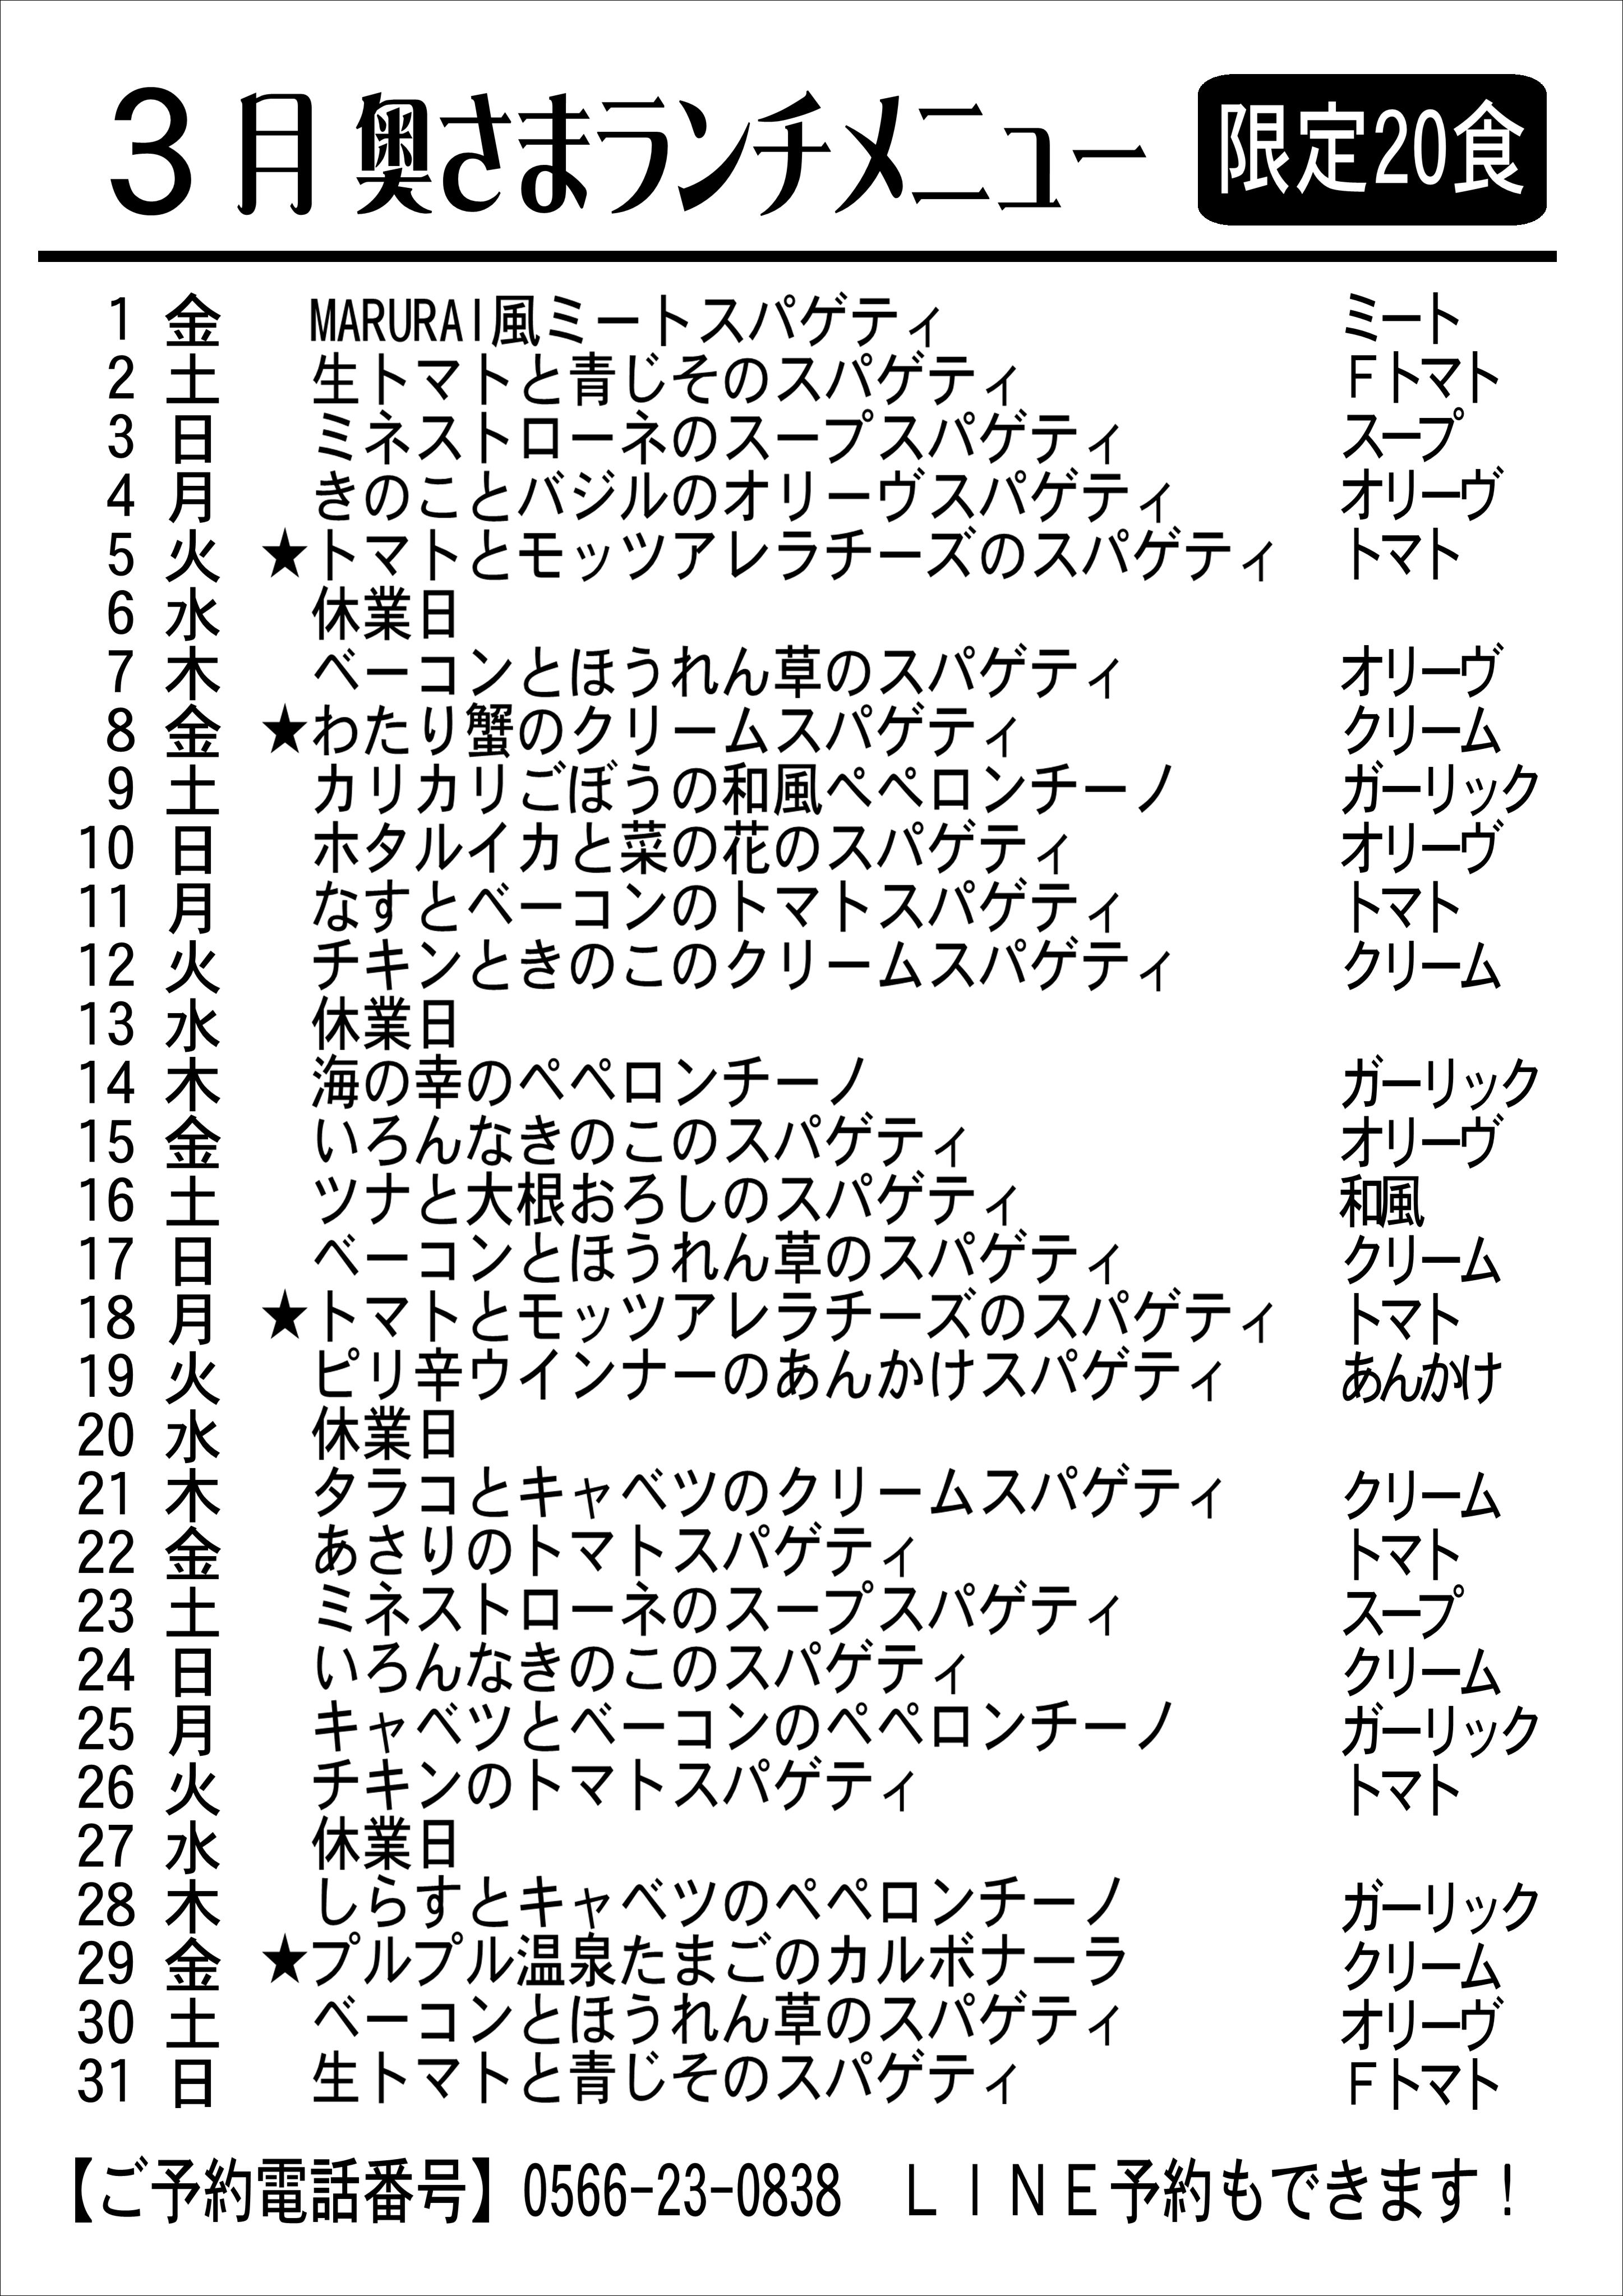 3月 奥さまランチメニュー 限定20食
1 金 MARURAI風ミートスパゲティ ミート
2 土 生トマトと青じそのスパゲティ Fトマト
3 日 ミネストローネのスープスパゲティ スープ
4 月 きのことバジルのオリーヴスパゲティ オリーヴ
5 火 ★トマトとモッツアレラチーズのスパゲティ トマト
6 水 休業日
7 木 ベーコンとほうれん草のスパゲティ オリーヴ
8 金 ★わたり蟹のクリームスパゲティ クリーム
9 土 カリカリごぼうの和風ペペロンチーノ ガーリック
10 日 ホタルイカと菜の花のスパゲティ オリーヴ
11 月 なすとベーコンのトマトスパゲティ トマト
12 火 チキンときのこのクリームスパゲティ クリーム
13 水 休業日
14 木 海の幸のペペロンチーノ ガーリック
15 金 いろんなきのこのスパゲティ オリーヴ
16 土 ツナと大根おろしのスパゲティ 和風
17 日 ベーコンとほうれん草のスパゲティ クリーム
18 月 ★トマトとモッツアレラチーズのスパゲティ トマト
19 火 ピリ辛ウインナーのあんかけスパゲティ あんかけ
20 水 休業日
21 木 タラコとキャベツのクリームスパゲティ クリーム
22 金 あさりのトマトスパゲティ トマト
23 土 ミネストローネのスープスパゲティ スープ
24 日 いろんなきのこのスパゲティ クリーム
25 月 キャベツとベーコンのペペロンチーノ ガーリック
26 火 チキンのトマトスパゲティ トマト
27 水 休業日
28 木 しらすとキャベツのペペロンチーノ ガーリック
29 金 ★プルプル温泉たまごのカルボナーラ クリーム
30 土 ベーコンとほうれん草のスパゲティ オリーヴ
31 日 生トマトと青じそのスパゲティ Fトマト
【ご予約電話番号】0566-23-0838 ＬＩＮＥ予約もできます！